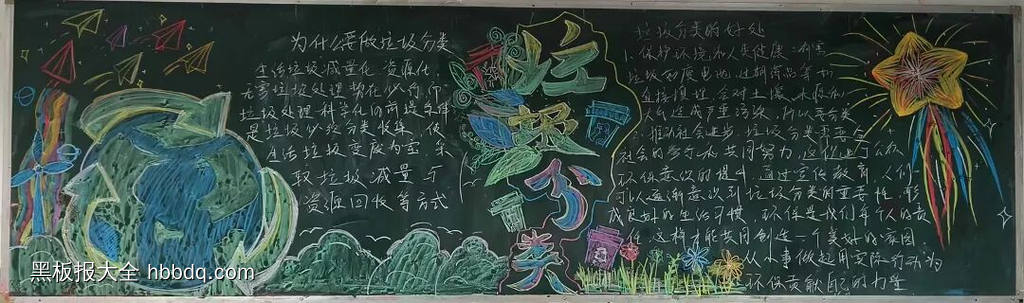 为什么要做垃圾分类
生活垃圾减量化 资源化
无害垃圾处理 势在必行 而
垃圾处理科学化的前提条件
是垃圾分类收集 使
生活垃圾变废为宝 采
取垃圾减量与
资源回收等方式
垃圾分类
垃圾分类的好处
1.保护环境和人类健康:有害
垃圾如废电池、过期药品等如
直接填埋,会对土壤、水源和
大气造成严重污染,所以要分类
2.推动社会进步:垃圾分类需要全
社会的参与和共同努力,这促进了公众
环保意识的提升,通过宣传教育,人们
可以逐渐意识到垃圾分类的重要性,形
成良好的生活习惯,环保是我们每个人的责
任,这样才能共同创造一个美好的家园
从小事做起用实际行动为
环保贡献自己的力量
黑板报大全 hbbdq.com